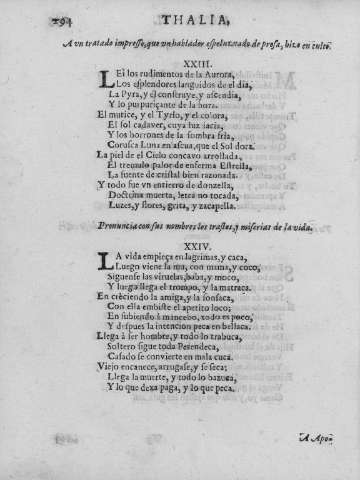 194 THALIA,
A vn tratado impresso, que vn hablador espeluznado de prosa, hizo en culto.
XXIII.
LEì los rudimentos de la Aurora,
Los esplendores languidos de el dia,
La Pyra, y el construye, y ascendia,
Y lo purpurizante de la hora.
El murice, y el Tyrio, y el colora,
El sol cadaver, cuya luz iacia,
Y los borrones de la sombra fria,
Corusca Luna en ascua, que el Sol dora.
La piel de el Cielo concavo arrollada,
El tremulo palor de enferma Estrella,
La fuente de cristal bien razonada.
Y todo fue vn entierro de donzella,
Doctrina muerta, letra no tocada,
Luzes, y flores, grita, y zacapella.
Pronuncia con sus nombres los trastos, y miserias de la vida.
XXIV.
LA vida empieça en lagrimas, y caca,
Luego viene la mu, con mama, y coco,
Siguense las viruelas, baba, y moco,
Y luego llega el trompo, y la matraca.
En crèciendo la amiga, y la sonsaca,
Con ella embiste el apetito loco;
En subiendo à mancebo, todo es poco,
Y despues la intencion peca en bellaca.
Llega à ser hombre, y todo lo trabuca,
Soltero sigue toda Perendeca,
Casado se convierte en mala cuca.
Viejo encanece, arrugase, y se seca;
Llega la muerte, y todo lo bazuca,
Y lo que dexa paga, y lo que peca.